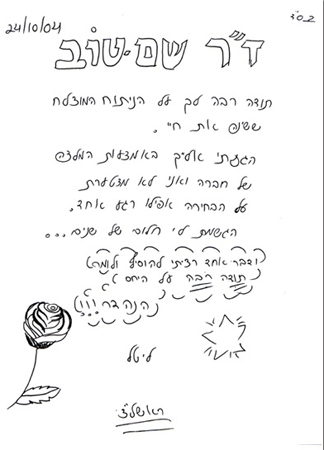 בס"ד
24/10/04
ד"ר שם-טוב
תודה רבה לך על הניתוח המוצלח
ששינה את חיי.
הגעתי אליך באמצעות המלצה
של חברה ואני לא מצטערת
על הבחירה אפילו רגע אחד.
הגשמת לי חלום של שנים...
ודבר אחד רציתי להוסיף ולומר
תודה רבה על היחס
הנהדר!!!
ליטל
ראשל"צ